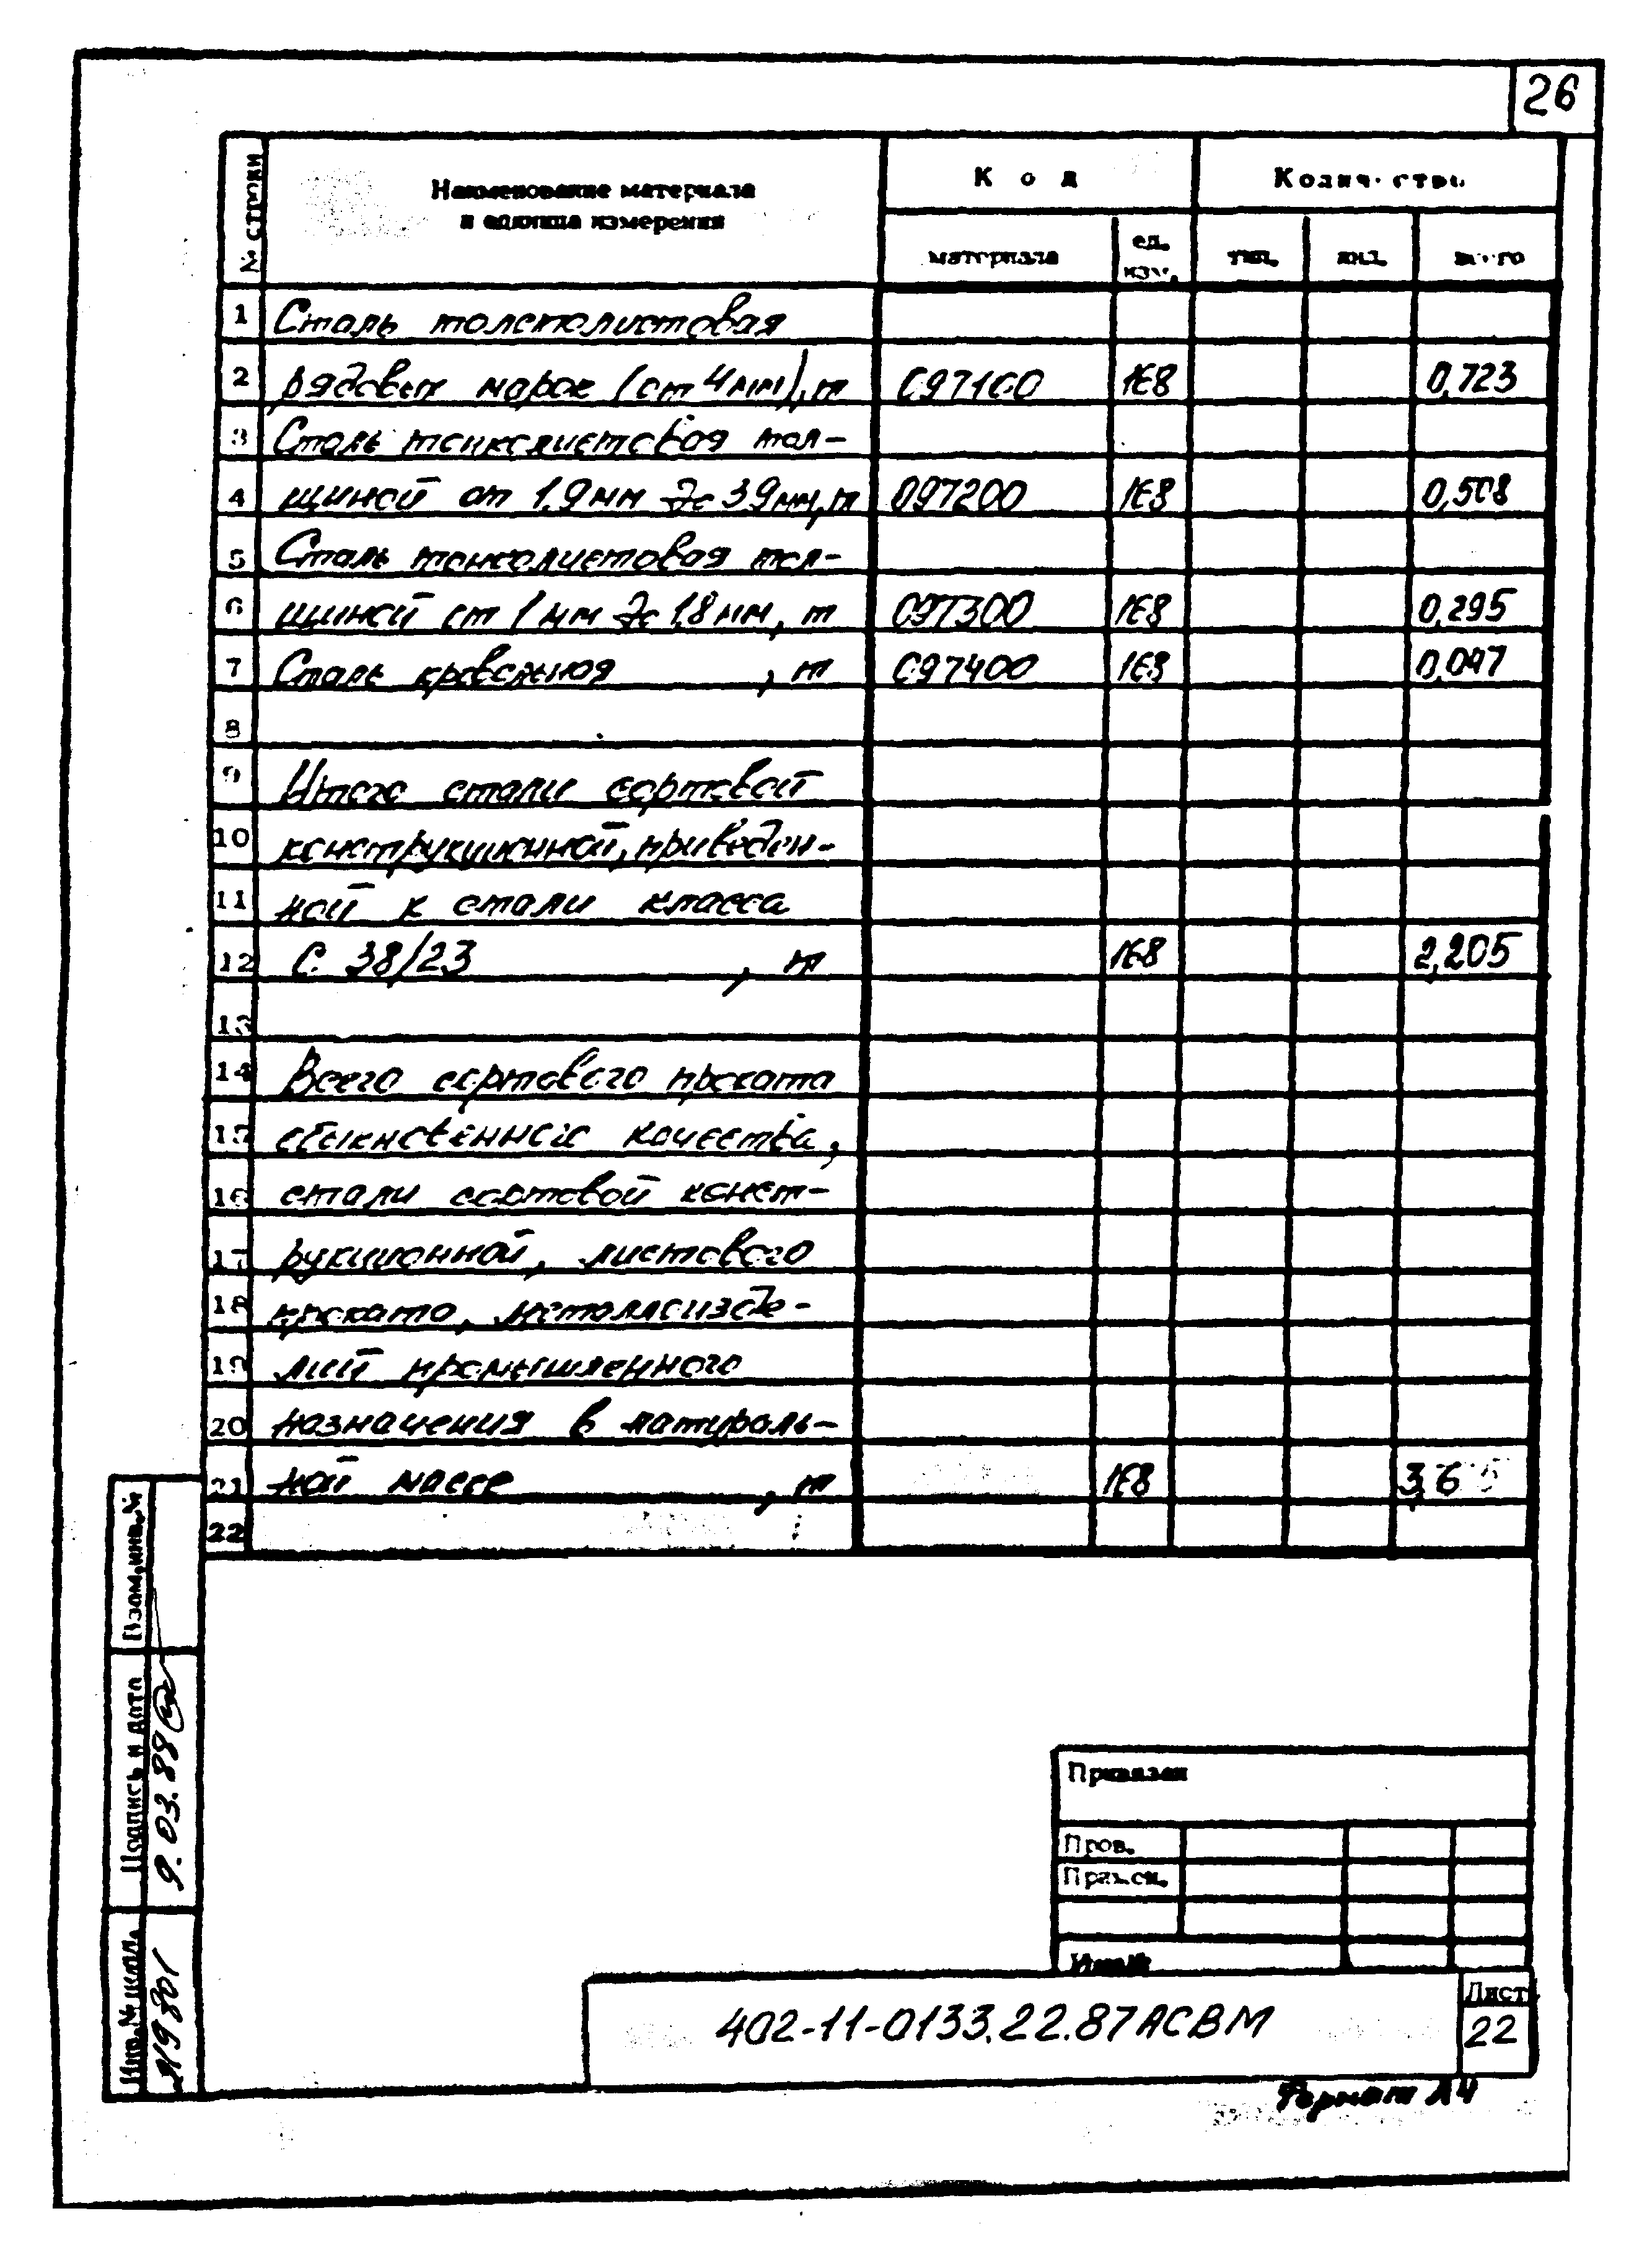 26
№ строки
Наименование материала
и единица измерения
Код
Количество
материала
ед.
изм.
тип.
инд.
всего
1 Сталь толстолистовая
2 рядовых марок (от 4 мм), т 097100 168 0,723
3 Сталь тонколистовая тол-
4 щиной от 1.9 мм до 3.9 мм, т 097200 168 0,508
5 Сталь тонколистовая тол-
6 щиной от 1 мм до 1,8 мм, т 097300 168 0,295
7 Сталь кровельная , т 097400 168 0,047
8
9 Итого стали сортовой
10 конструкционной, приведен-
11 ной к стали класса
12 С 38/23 , т 168 2,205
13
14 Всего сортового проката
15 обыкновенного качества,
16 стали сортовой конст-
17 рукционной, листового
18 проката, металлоизде-
19 лий промышленного
20 назначения в натураль-
21 ной массе , т 168 3,6
22
Взам.инв.№
Подпись и дата
9.03.88
Инв.№ подл.
Привязан
Пров.
Инв.№
402-11-0133.22.87 АСВМ
Лист
22
Формат А4